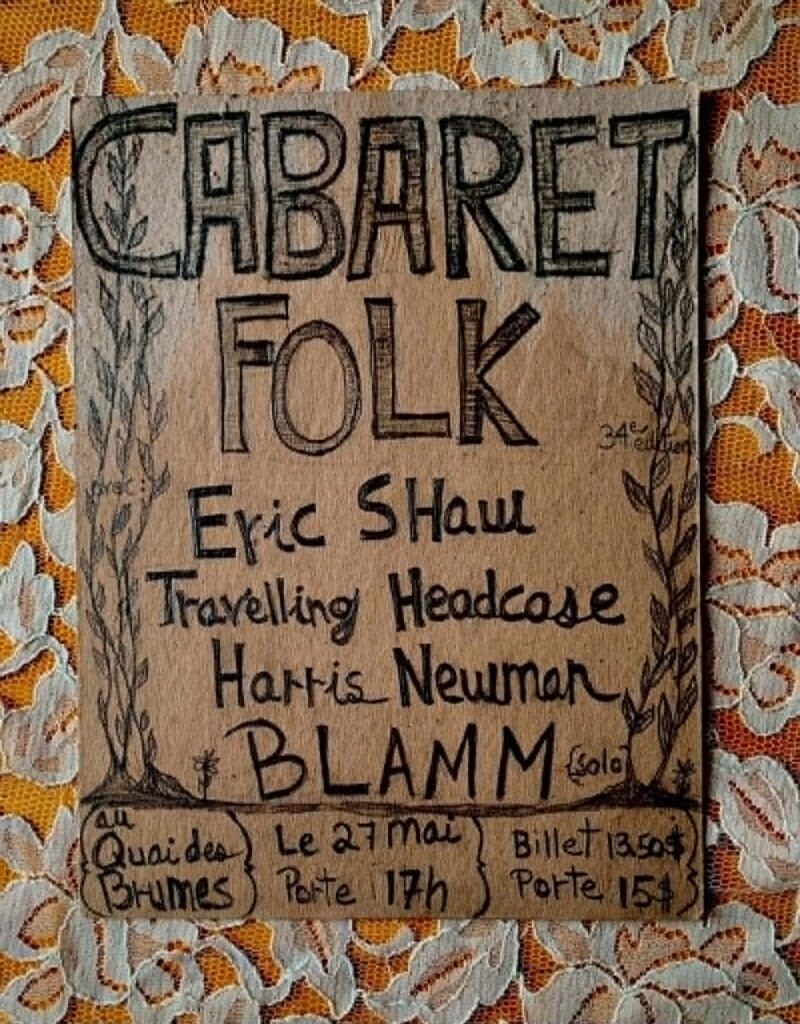 CABARET
FOLK
34e édition
avec:
Eric SHaw
Travelling Headcase
Harris Newman
BLAMM {solo}
au
Quai des
Brumes
Le 27 mai
Porte 17h
Billet 13.50$
Porte 15$